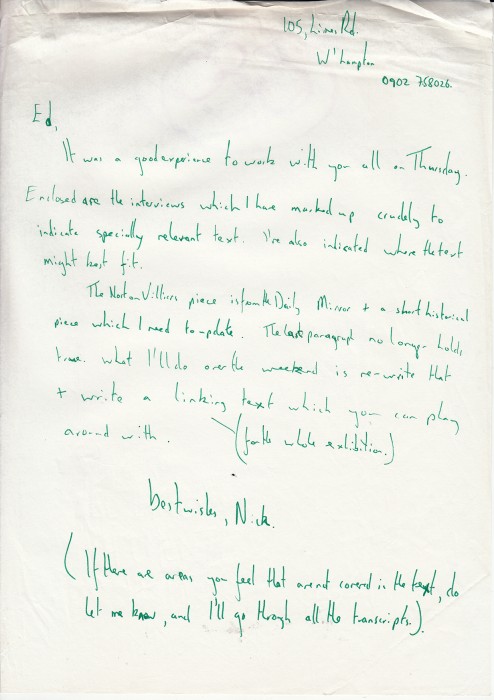 105, Limes Rd.
W'hampton
0902 758026.
Ed,
It was a good experience to work with you all on Thursday.
Enclosed are the interviews which I have marked up crudely to
indicate specially relevant text. I've also indicated where the text
might best fit.
The Norton Villiers piece is from the Daily Mirror + a short historical
piece which I need to update. The last paragraph no longer holds
true. what I'll do over the weekend is re-write that
+ write a linking text which you can play
around with. (for the whole exhibition.)
best wishes, Nick.
(If there are areas you feel that are not covered in the text, do
let me know, and I'll go through all the transcripts.)